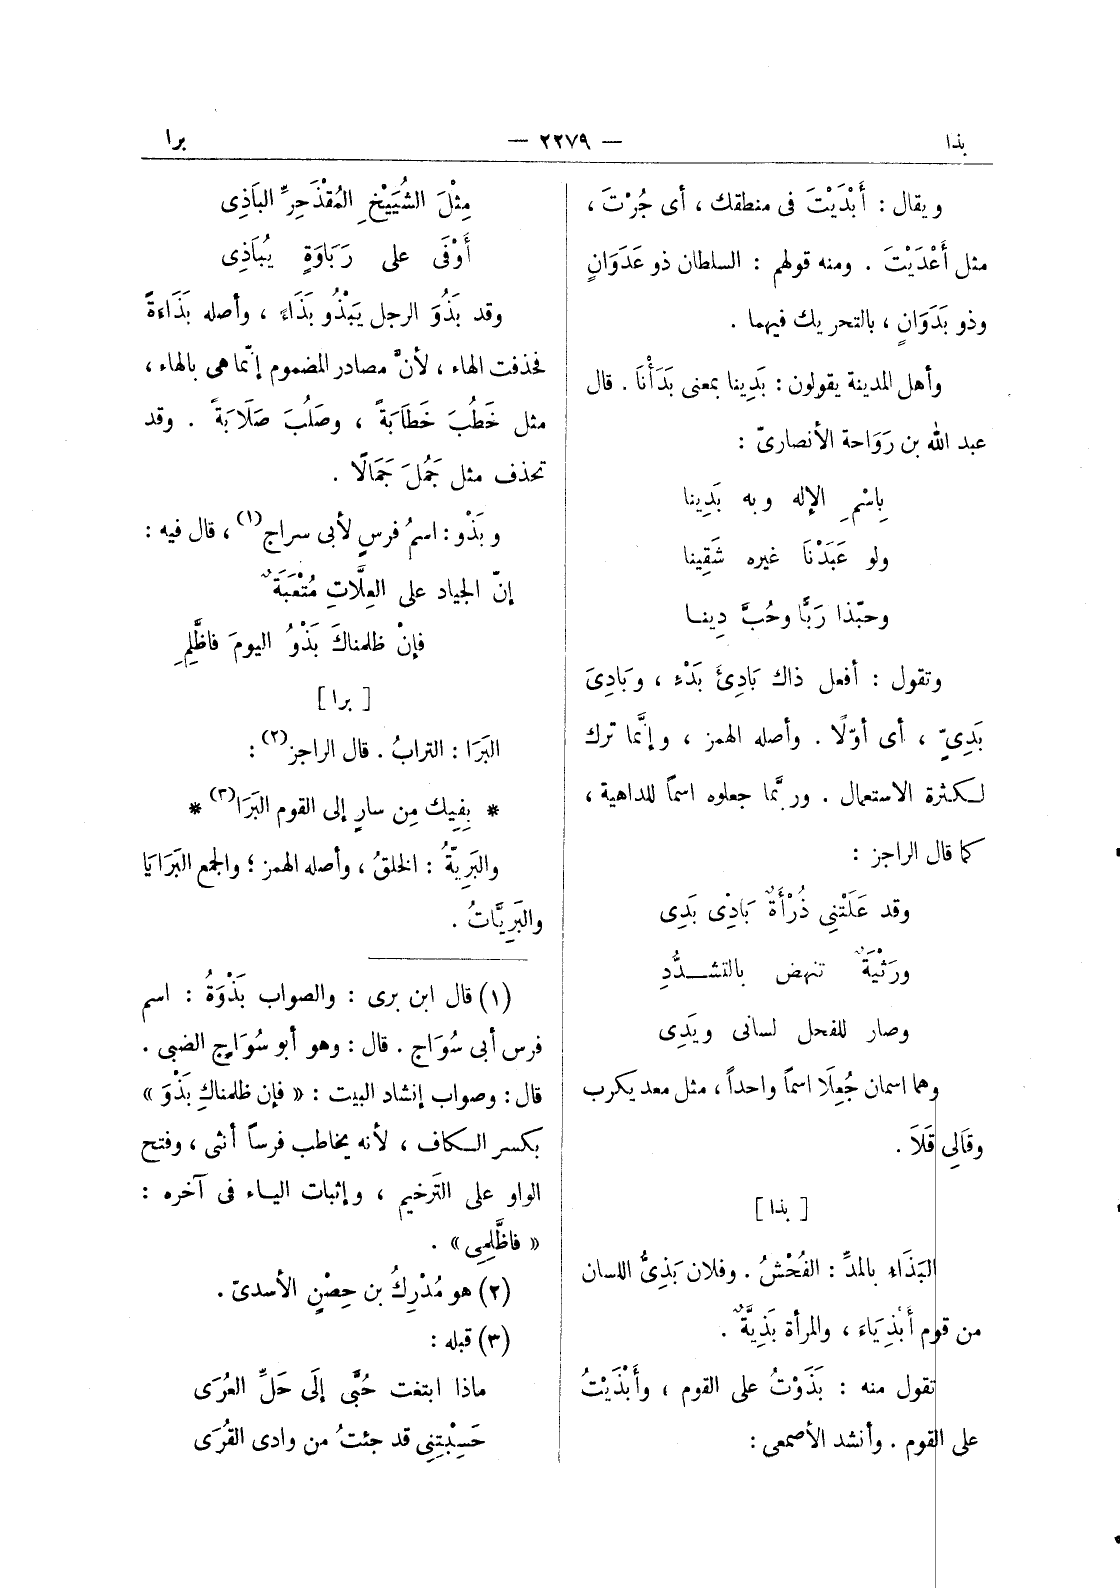 بذا — ٢٢٧٩ — برا
ويقال : أَبْدَيْتَ فى منطقك ، أى جُرْتَ ،
مثل أَعْدَيْتَ . ومنه قولهم : السلطان ذو عَدَوَانٍ
وذو بَدَوَانٍ ، بالتحريك فيهما .
وأهل المدينة يقولون : بَدِينا بمعنى بَدَأْنَا . قال
عبد الله بن رَوَاحة الأنصارىّ :
بِاسْمِ الإله وبه بَدِينا
ولو عَبَدْنَا غيره شَقِينا
وحبّذا رَبًّا وحُبَّ دِينا
وتقول : أفعل ذاك بَادِئَ بَدْءٍ ، وبَادِىَ
بَدِىٍّ ، أى أوّلًا . وأصله الهمز ، وإنَّما ترك
لكثرة الاستعمال . وربَّما جعلوه اسماً للداهية ،
كما قال الراجز :
وقد عَلَتْنِى ذُرْأَةٌ بَادِى بَدِى
ورَثْيَةٌ تنهض بالتشدُّدِ
وصار للفحل لسانى ويَدِى
وهما اسمان جُعِلَا اسماً واحداً ، مثل معد يكرب
وقَالِى قَلَا .
[ بذا ]
البَذَاء بالمدِّ : الفُحْشُ . وفلان بَذِىُّ اللسان
من قوم أَبْذِيَاءَ ، والمرأة بَذِيَّةٌ .
تقول منه : بَذَوْتُ على القوم ، وأَبْذَيْتُ
على القوم . وأنشد الأصمعى :
مِثْلَ الشُيَيْخِ المُقْذَحِرِّ البَاذِى
أَوْفَى على رَبَاوَةٍ يُبَاذِى
وقد بَذُوَ الرجل يَبْذُو بَذَاءً ، وأصله بَذَاءةً
فحذفت الهاء ، لأنَّ مصادر المضموم إنّما هى بالهاء ،
مثل خَطُبَ خَطَابَةً ، وصَلُبَ صَلَابَةً . وقد
تحذف مثل جَمُلَ جَمَالًا .
وبَذْو : اسمُ فرسٍ لأبى سراج(١) ، قال فيه :
إنّ الجياد على العِلَّاتِ مُتْعَبَةٌ
فإنْ ظلمناكَ بَذْوُ اليومَ فاظَّلِمِ
[ برا ]
البَرَا : الترابُ . قال الراجز(٢) :
* بِفِيكَ مِن سارٍ إلى القوم البَرَا(٣) *
والبَرِيّةُ : الخلقُ ، وأصله الهمز ؛ والجمع البَرَايَا
والبَرِيَّاتُ .
(١) قال ابن برى : والصواب بَذْوَةُ : اسم
فرس أبى سُوَاج . قال : وهو أبو سُوَاجٍ الضبى .
قال : وصواب إنشاد البيت : « فإن ظلمناكِ بَذْوَ »
بكسر الكاف ، لأنه يخاطب فرساً أنثى ، وفتح
الواو على الترخيم ، وإثبات الياء فى آخره :
« فاظَّلِمِى » .
(٢) هو مُدْرِكُ بن حِصْنٍ الأسدىّ .
(٣) قبله :
ماذا ابتغت حُبَّى إلَى حَلِّ العُرَى
حَسِبْتِنِى قد جئتُ من وادى القُرَى